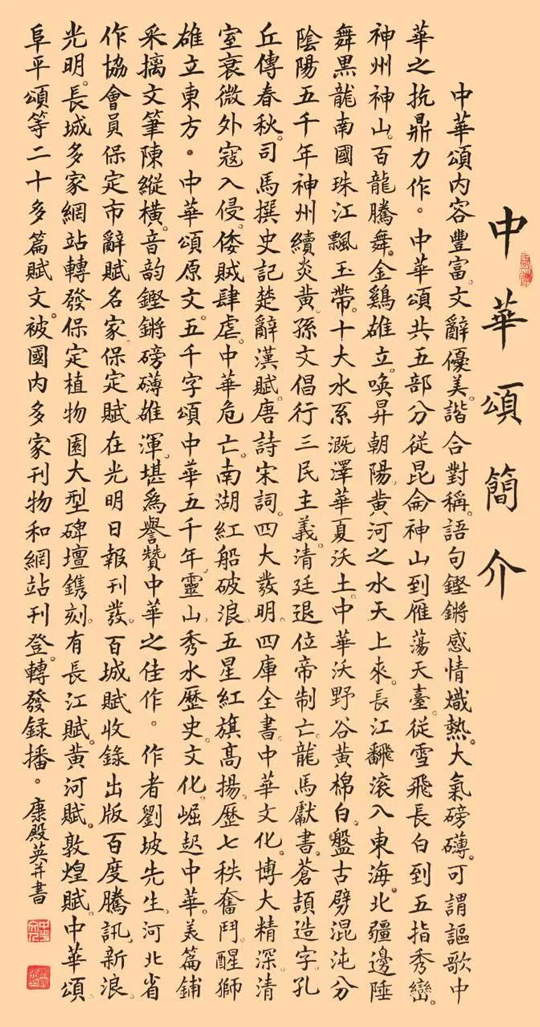 中華頌簡介
中華頌内容豐富。文辭優美。諧合對稱。語句鏗鏘。感情熾熱。大氣磅礴。可謂謳歌中
華之抗鼎力作。中華頌共五部分。從昆侖神山到雁蕩天臺。從雪飛長白到五指秀巒。
神州神山。百龍騰舞。金鷄雄立。喚昇朝陽。黄河之水天上來。長江飜滚入東海。北疆邊陲
舞黒龍。南國珠江飄玉帶。十大水系溉澤華夏沃土。中華沃野谷黄棉白。盤古劈混沌分
陰陽。五千年神州續炎黄。孫文倡行三民主義。清廷退位帝制亡。龍馬獻書。蒼頡造字。孔
丘傳春秋。司馬撰史記。楚辭漢賦。唐詩宋詞。四大發明。四庫全書。中華文化。博大精深。清
室衰微。外寇入侵。倭賊肆虐。中華危亡。南湖紅船破浪。五星紅旗高揚。歷七秩奮鬥。醒獅
雄立東方。中華頌原文。五千字頌中華五千年。靈山秀水。歷史文化。崛起中華。美篇鋪
采摛文。筆陳縱横。音韵鏗鏘。磅礴雄渾。堪爲譽贊中華之佳作。作者劉坡先生。河北省
作協會員。保定市辭賦名家。保定賦在光明日報刊發。百城賦收錄出版。百度騰訊。新浪
光明。長城多家網站轉發。保定植物園大型碑壇鐫刻。有長江賦。黄河賦。敦煌賦。中華頌
阜平頌等二十多篇賦文。被國内多家刊物和網站刊登。轉發録播。康殿英并書